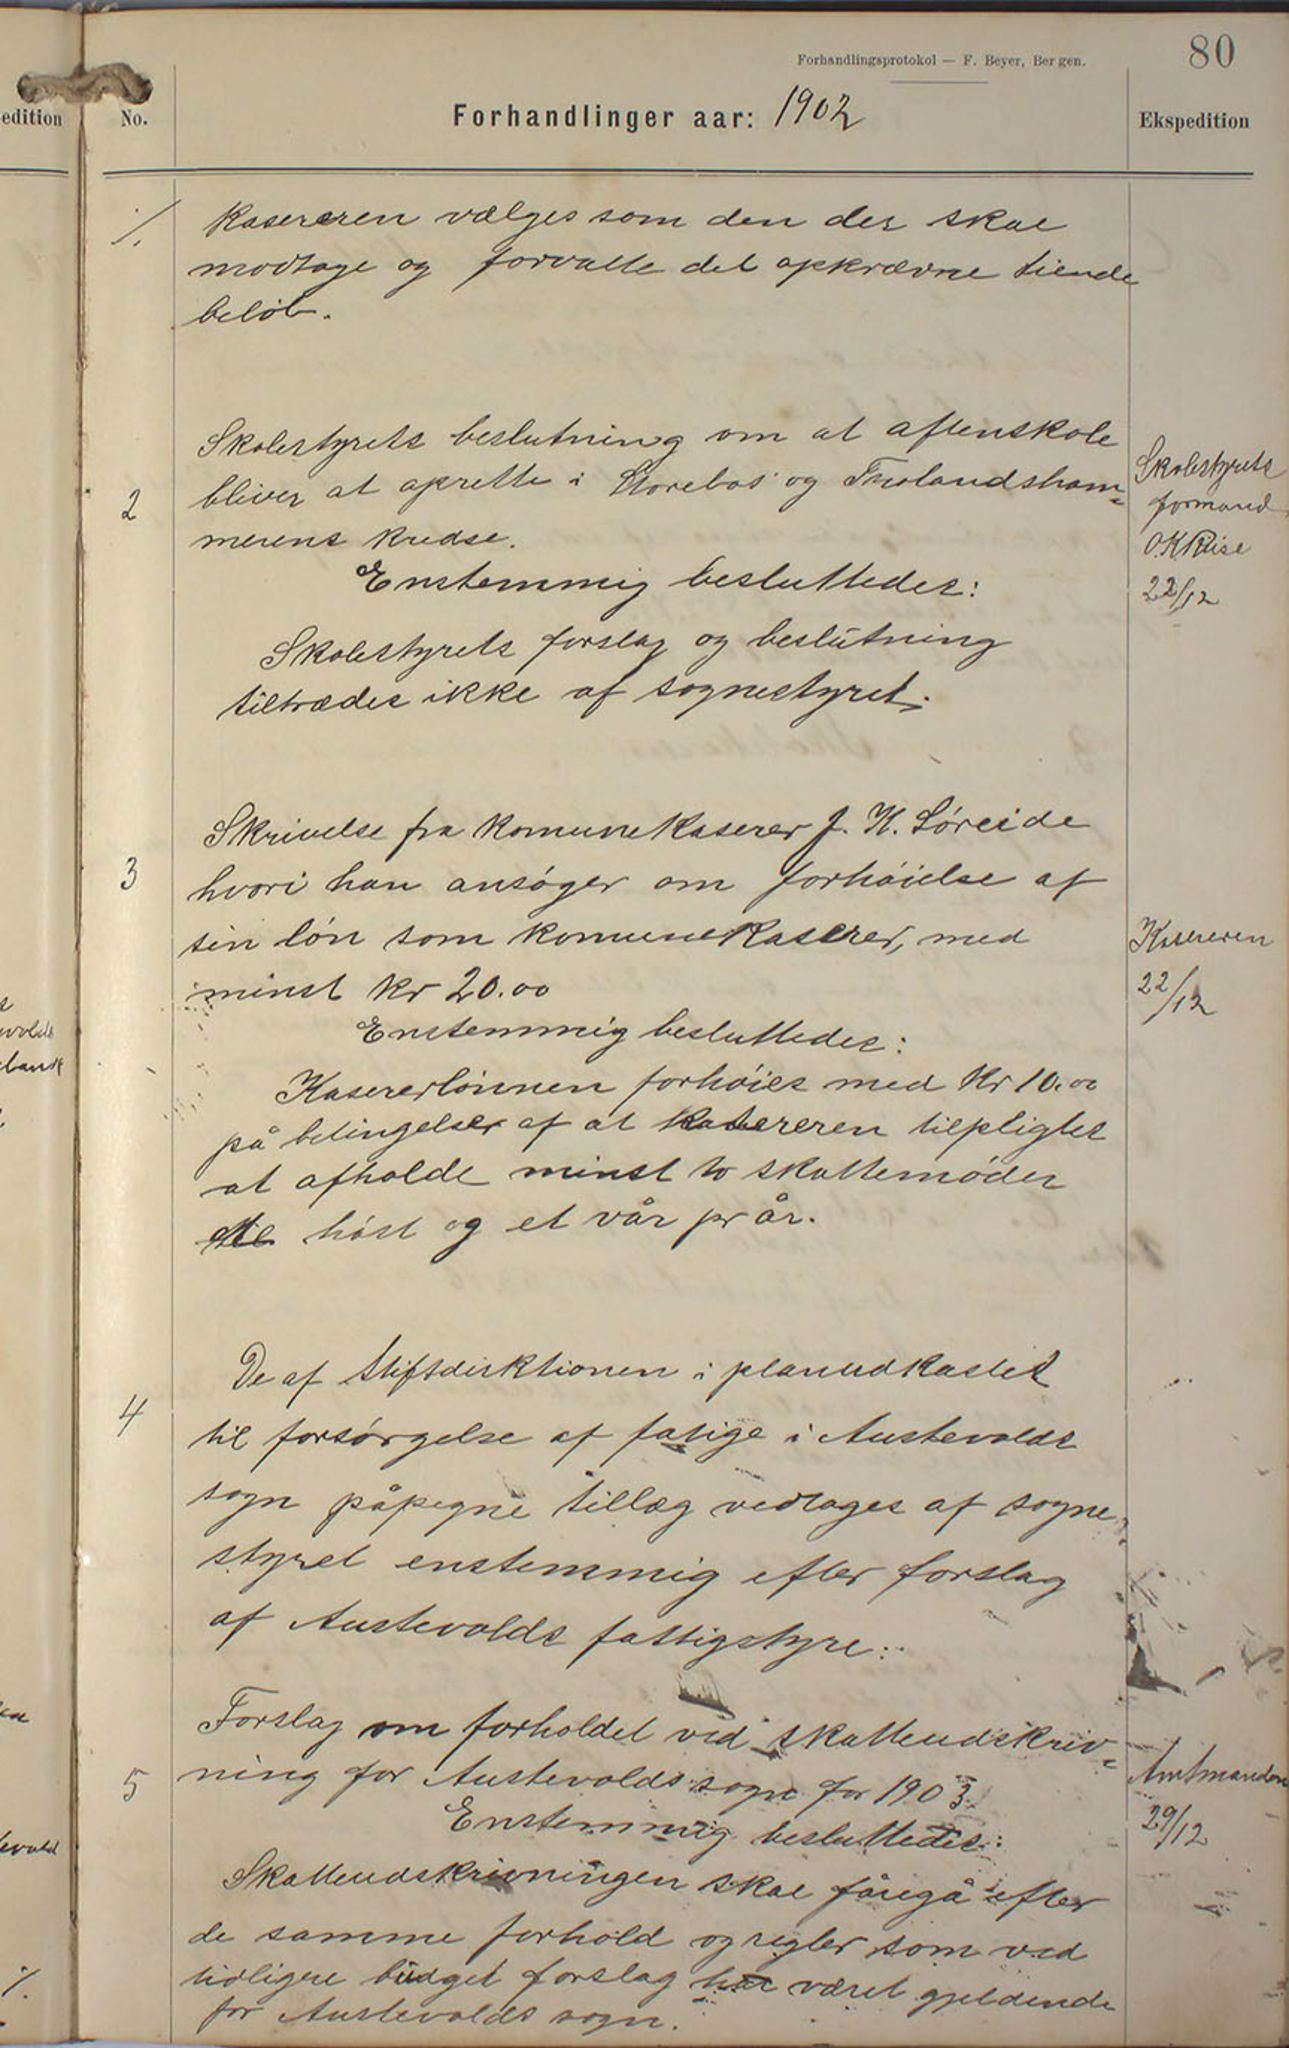 Forhandlingsprotokol — F. Beyer, Bergen.
80
edition
No.
Forhandlinger aar: 1902
Ekspedition
⁒
Kasereren vælges som den der skal
modtage og forvalte det opkrævne tiende
beløb.
2
Skolestyrets beslutning om at aftenskole
bliver at oprette i Storebøs og Troland​sham=
merens kredse.
Enstemmig besluttedes:
Skolestyrets forslag og beslutning
tiltrædes ikke af sognestyret.
Skolestyrets
formand
O.K Riise
22/12
3
Skrivelse fra komunekaserer J. K. Søreide
hvori han ansøger om forhøielse af
sin løn som komunekaserer, med
minst kr 20.00
Enstemmig besluttedes:
Kasererlønnen forhøies med Kr 10.00
på betingelser af at kasereren tilpligtes
at afholde minst to skattemøder
høst og et vår pr år.
Kasereren
22/12
4
De af Stiftsdirktionen i planudkastet
til forsørgelse af fatige i Austevolds
sogn påpegne tillæg vedtages af sogne=
styret enstemmig efter forslag
af Austevolds fattigstyre.
5
Forslag om forholdet ved skatteudskriv=
ning for Austevolds sogn for 1903.
Enstemmig besluttedes:
Skatteudskrivningen skal foregå efter
de samme forhold og regler som ved
tidligere budget forslag har været gjeldende
for Austevolds sogn.
Amtmanden
29/12